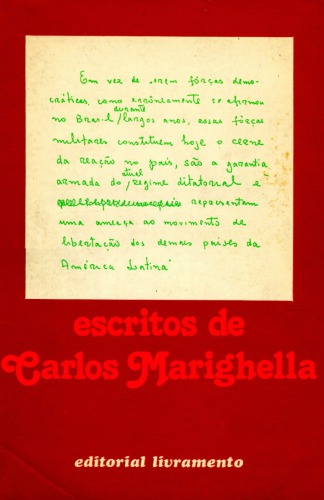 Em vez de serem fôrças demo-
cráticas, como errôneamente se afirmou
durante
no Brasil / largos anos, essas fôrças
militares constituem hoje o cerne
da reação no país, são a garantia
atual
armada do / regime ditatorial e
representam
uma ameaça ao movimento de
libertação dos demais países da
América Latina
escritos de
Carlos Marighella
editorial livramento